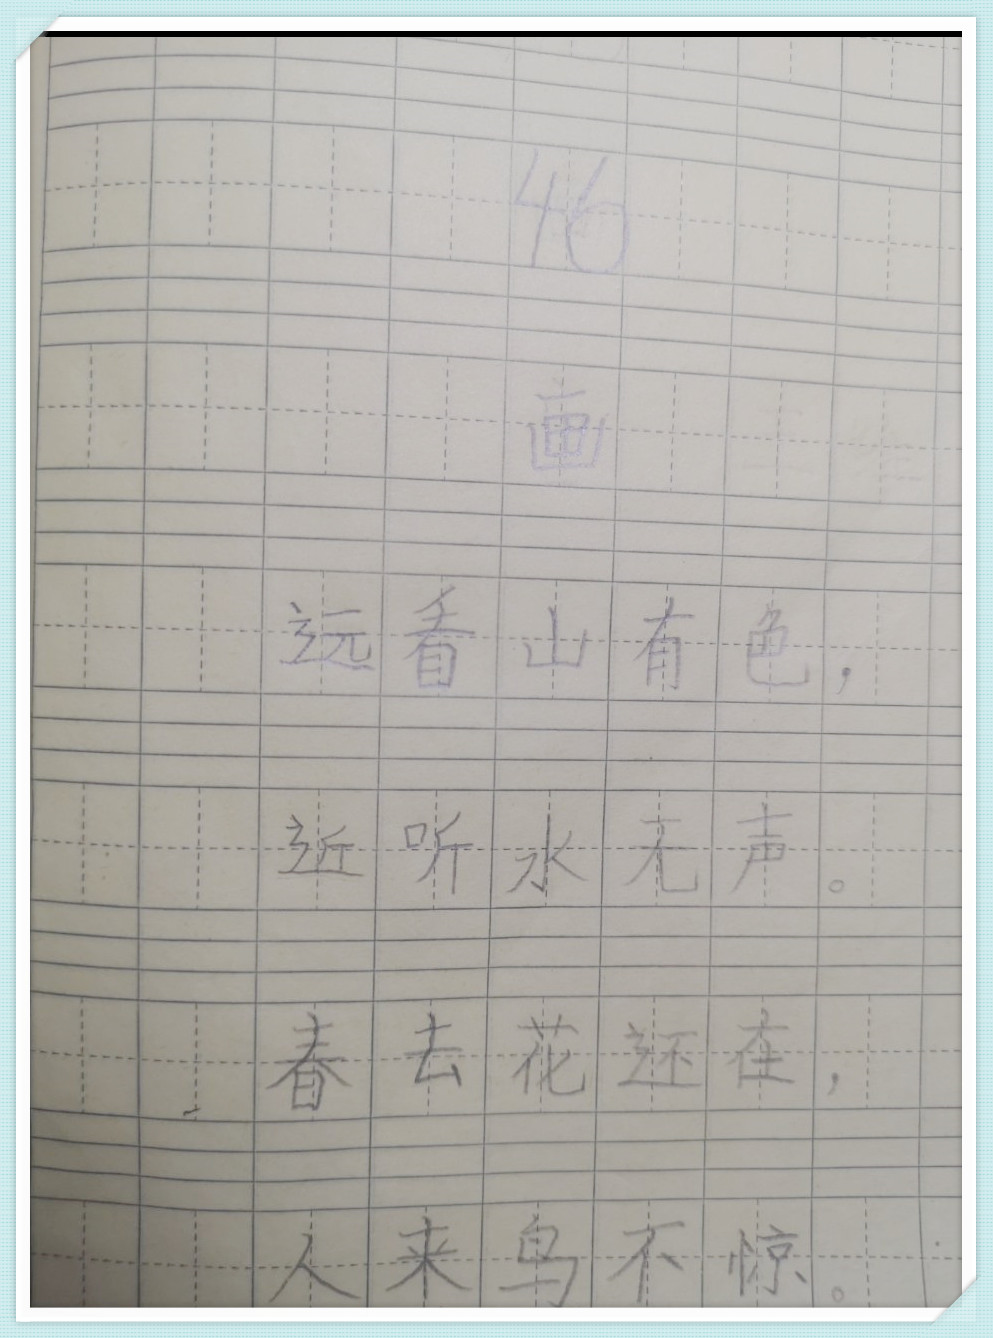 46
画
远看山有色，
近听水无声。
春去花还在，
人来鸟不惊。